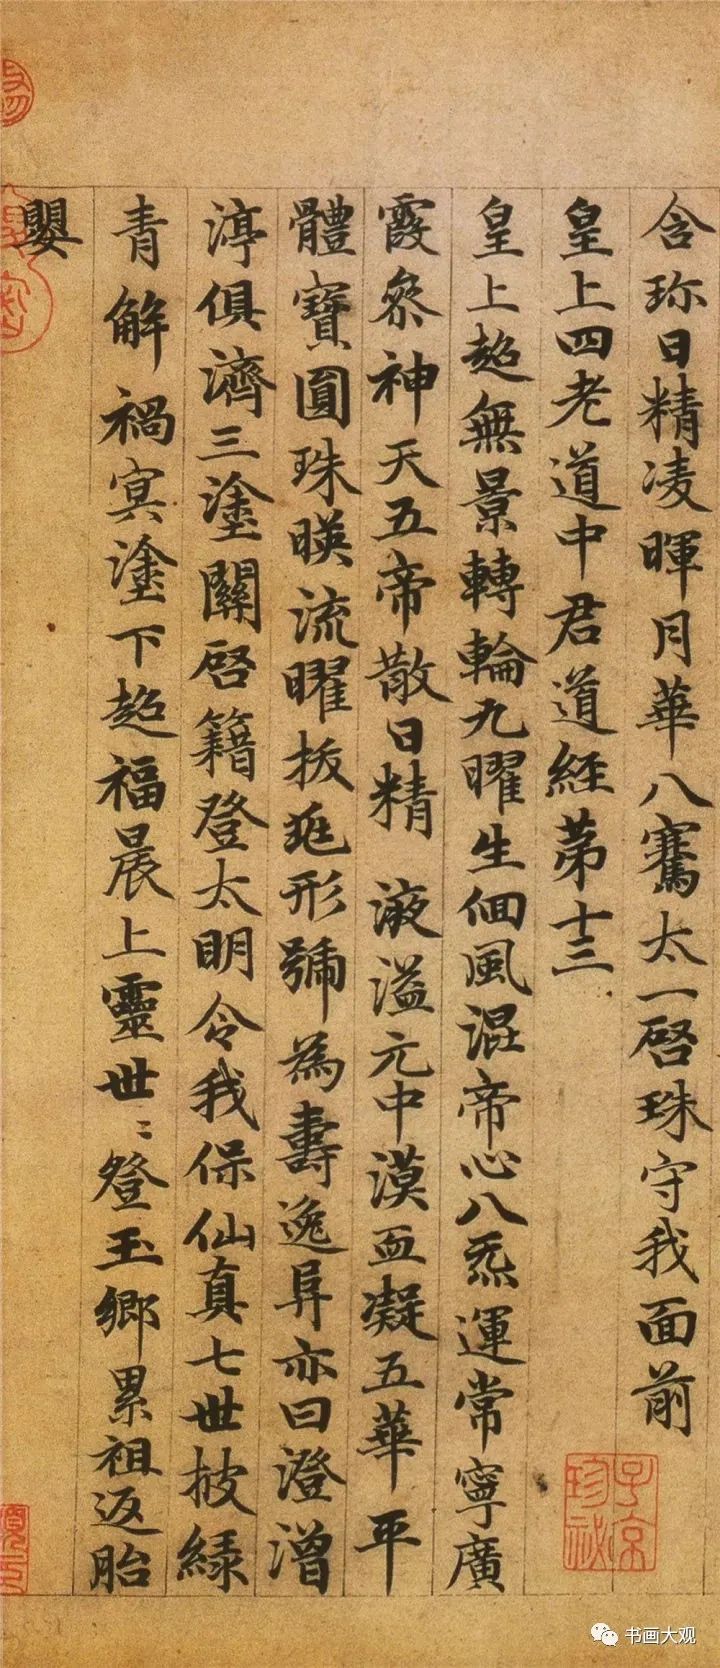 含珎日精凌暉月華八騫太一啓珠守我面前
皇上四老道中君道經苐十三
皇上超無景轉輪九曜生佪風混帝心八炁運常寧廣
霞叅神天五帝散日精 液溢元中漠血凝五華平
體寶圓珠暎流曜扳迊形號為壽逸阜亦曰澄渻
渟俱濟三塗關啓籍登太明令我保仙真七世披緑
青解禍冥塗下超福晨上靈世〻登玉鄉累祖返胎
嬰
子京
珍祕
书画大观